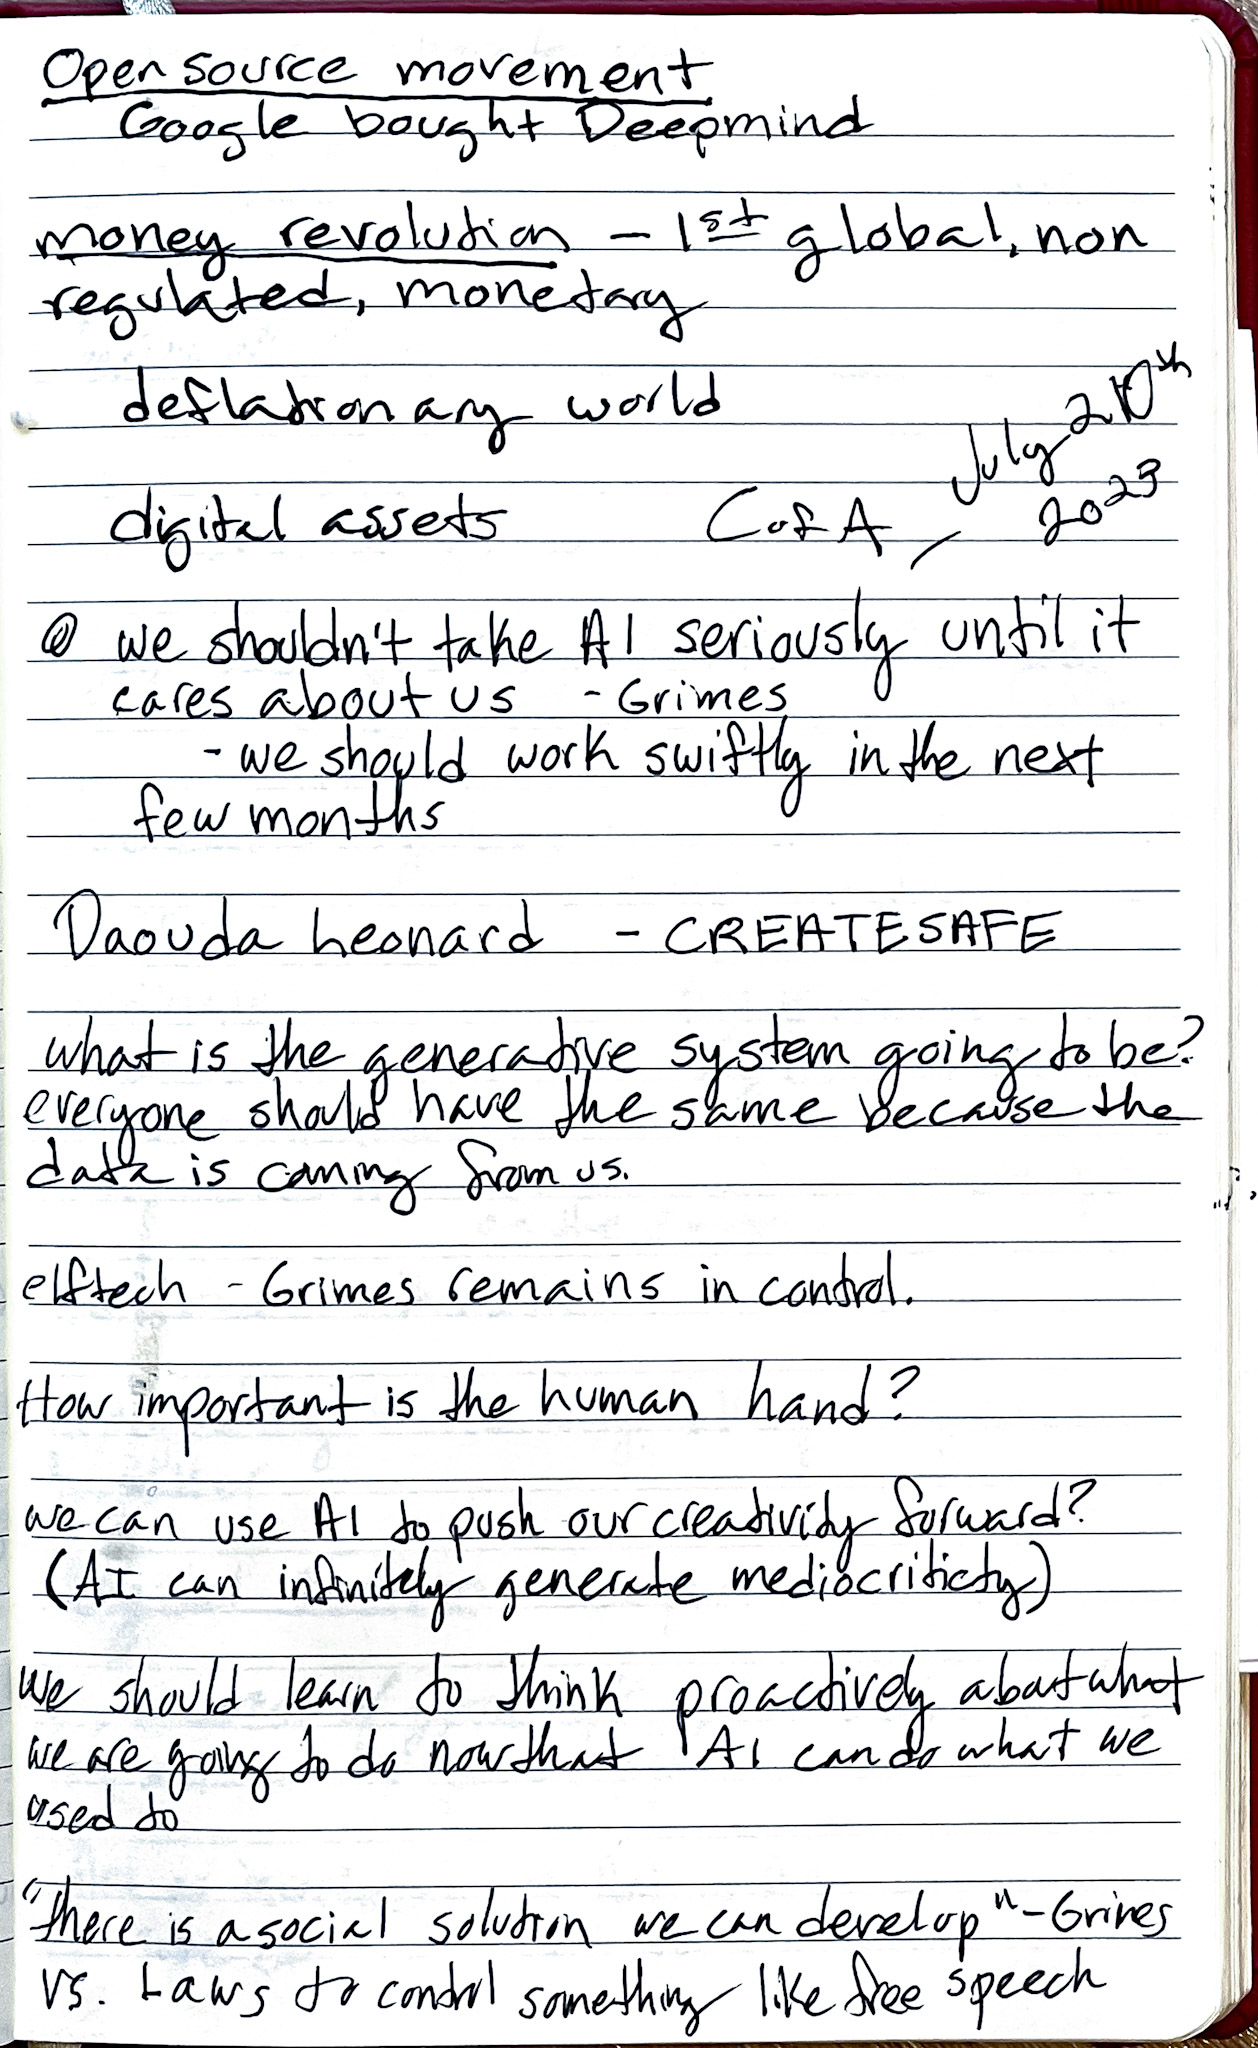 Open source movement
Google bought Deepmind
money revolution - 1st global, non
regulated, monetary
deflationary world
digital assets
C of A, July 20th
2023
@ we shouldn't take AI seriously until it
cares about us - Grimes
- we should work swiftly in the next
few months
Daouda Leonard - CREATESAFE
what is the generative system going to be?
everyone should have the same because the
data is coming from us.
elftech - Grimes remains in control.
How important is the human hand?
we can use AI to push our creativity forward?
(AI can infinitely generate mediocriticty)
we should learn to think proactively about what
we are going to do now that AI can do what we
used to
"there is a social solution we can develop" - Grimes
vs. Laws to control something like free speech